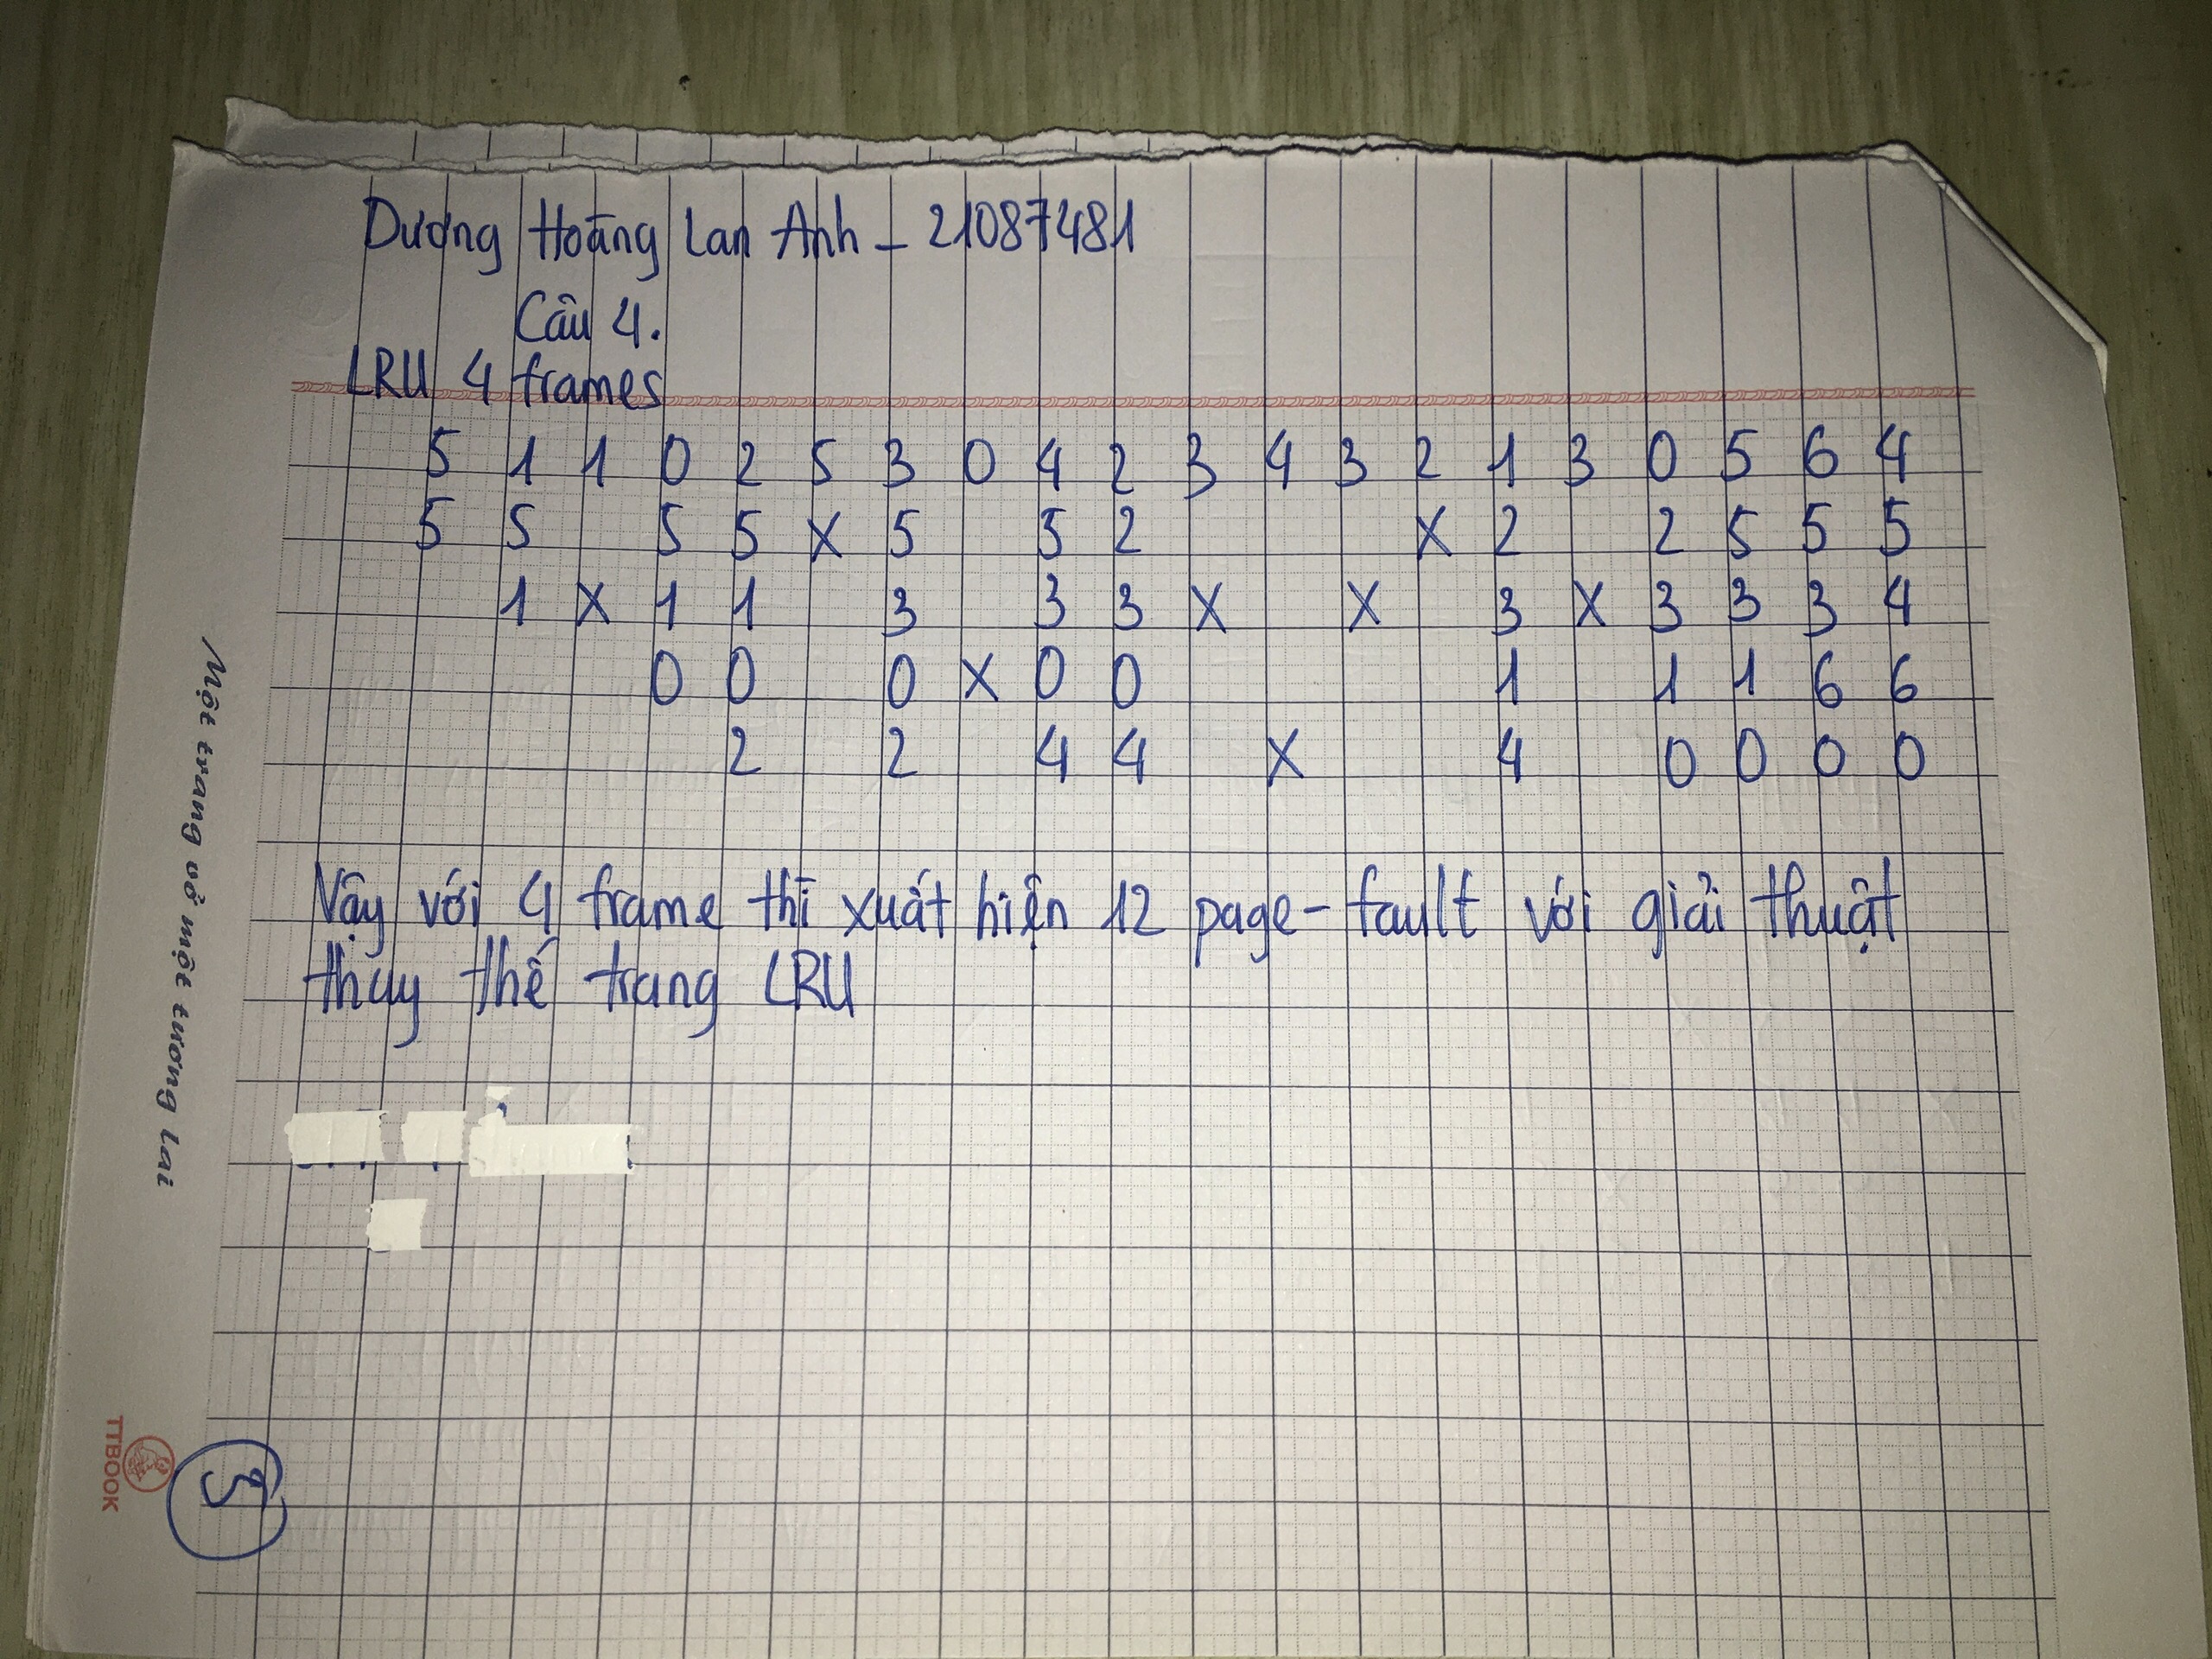 Dương Hoàng Lan Anh - 21087481
Câu 4.
LRU 4 frames
5 1 1 0 2 5 3 0 4 2 3 4 3 2 1 3 0 5 6 4
5 5 5 5 X 5 5 2 X 2 2 5 5 5
1 X 1 1 3 3 3 X X 3 X 3 3 3 4
0 0 0 X 0 0 1 1 1 6 6
2 2 4 4 X 4 0 0 0 0
Vậy với 4 frame thì xuất hiện 12 page-fault với giải thuật
thay thế trang LRU
Một trang vở một tương lai
TTBOOK